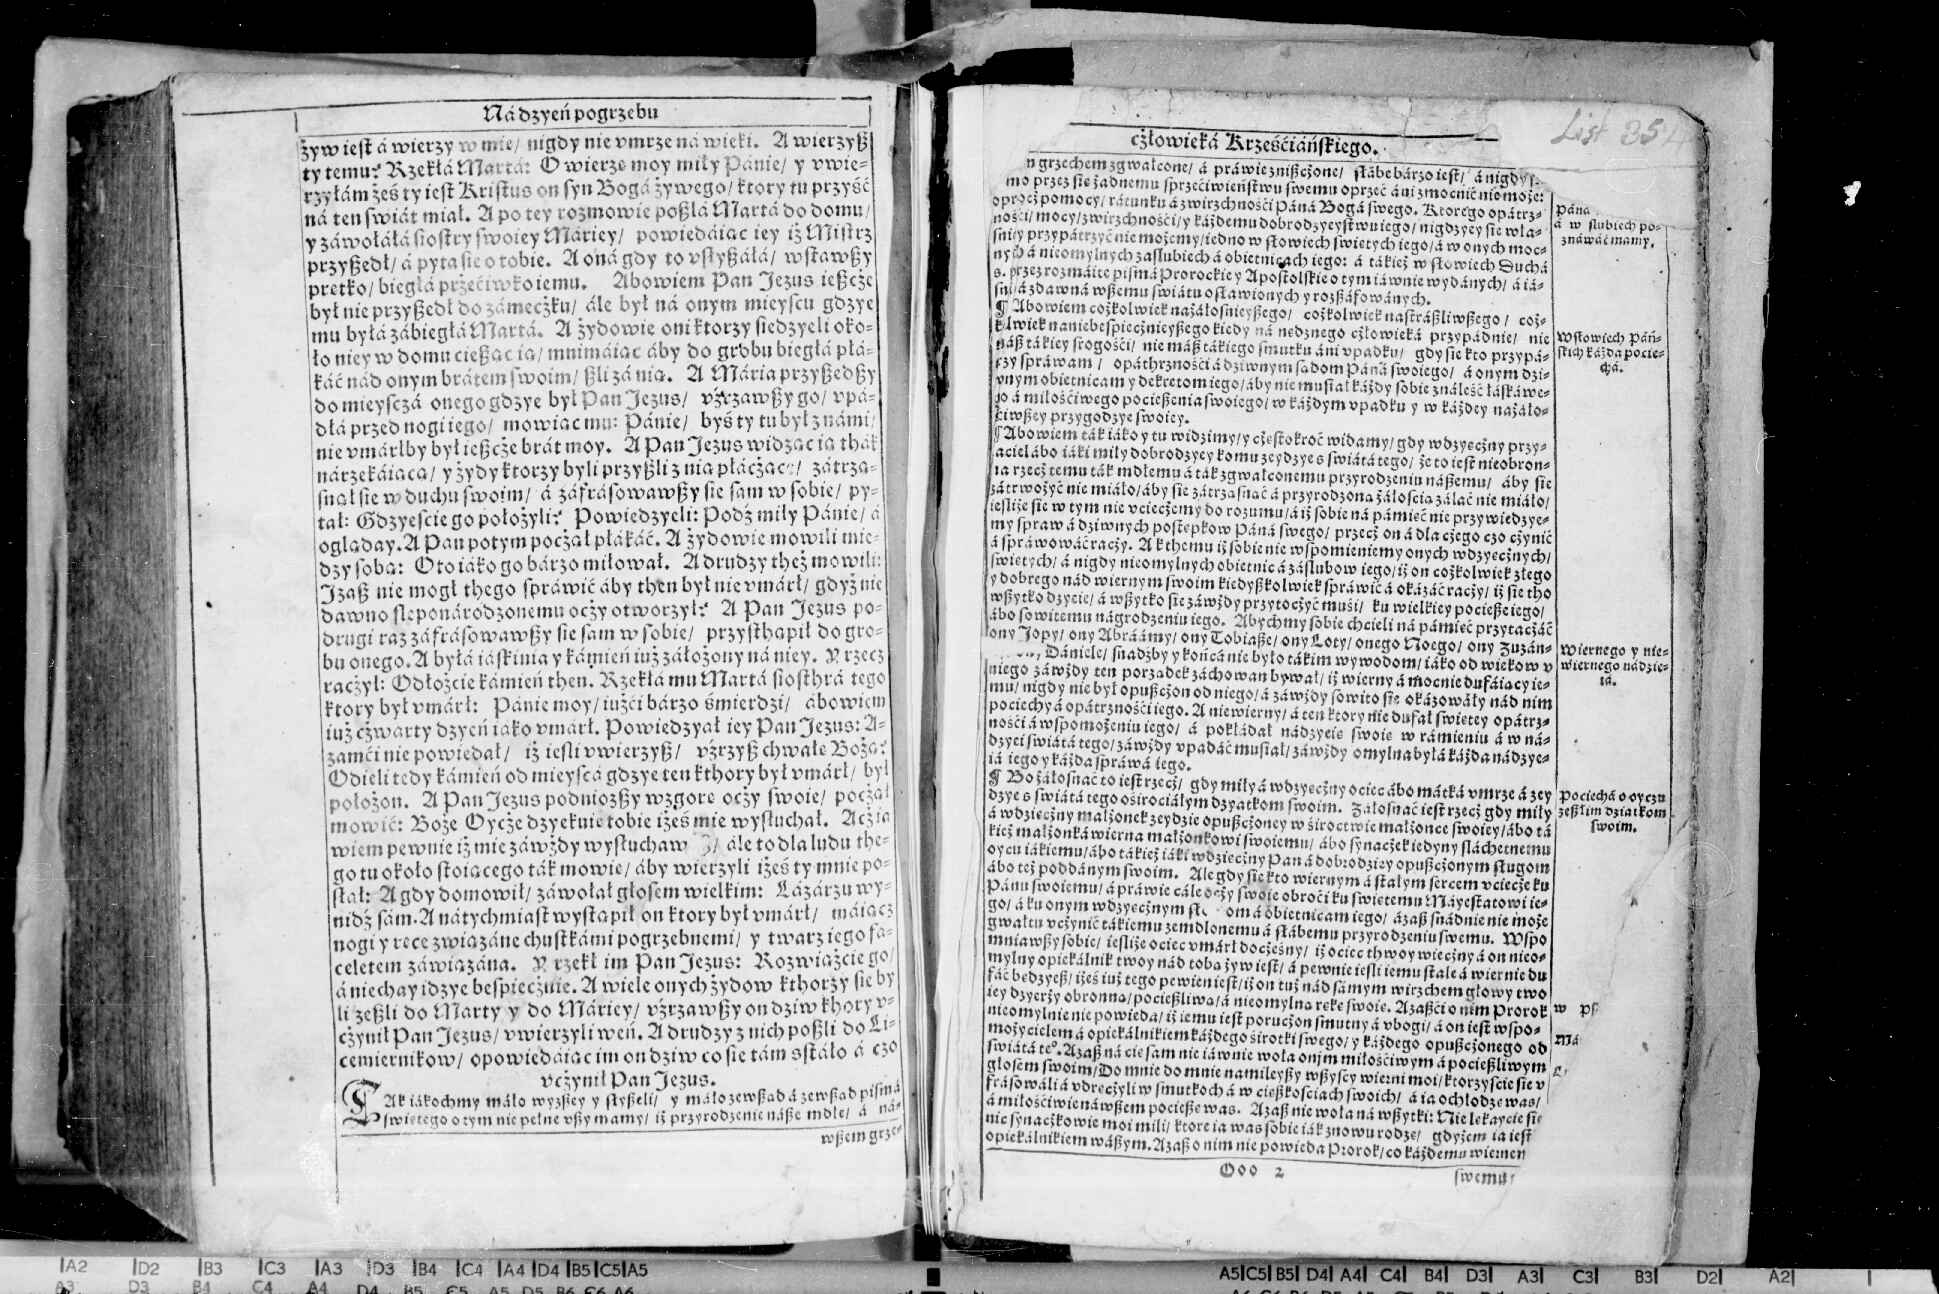 Ná dzyeń pogrzebu
żyw iest á wierzy w mie/ nigdy nie vmrze ná wieki. A wierzyß
ty temu? Rzekłá Mártá: O wierzę moy miły Pánie/ y vwie-
rzyłám żeś ty iest Kristus on syn Bogá żywego/ ktory tu przyść
ná ten swiát miał. A po tey rozmowie poßlá Mártá do domu/
y záwołáłá siostry swoiey Máriey/ powiedáiąc iey iż Mistrz
przyßedł/ á pyta sie o tobie. A oná gdy to vsłyßáłá/ wstawßy
prętko/ biegłá przećiwko iemu. Abowiem Pan Jezus ießcże
był nie przyßedł do zámecżku/ ále był ná onym mieyscu gdzye
mu byłá zábiegłá Mártá. A żydowie oni ktorzy siedzyeli oko-
ło niey w domu cießąc ią/ mnimáiąc áby do grobu biegłá płá-
káć nád onym brátem swoim/ ßli zá nią. A Mária przyßedßy
do mieyscá onego gdzye był Pan Jezus/ vźrzawßy go/ vpá-
dłá przed nogi iego/ mowiąc mu: Pánie/ byś ty tu był z námi/
nie vmárłby był ießcże brát moy. A Pan Jezus widząc ią thák
nárzekáiącą/ y żydy ktorzy byli przyßli z nią płácżące/ zátrzą-
snął sie w duchu swoim/ á záfrásowawßy sie sam w sobie/ py-
tał: Gdzyeście go położyli? Powiedzyeli: Podź miły Pánie/ á
ogląday. A Pan potym pocżął płákáć. A żydowie mowili mię-
dzy sobą: Oto iáko go bárzo miłował. A drudzy theż mowili:
Jzaß nie mogł thego spráwić áby then był nie vmárł/ gdyż nie
dawno śleponárodzonemu ocży otworzył? A Pan Jezus po-
drugi raz záfrásowawßy sie sam w sobie/ przysthąpił do gro-
bu onego. A byłá iáskinia y kámień iuż záłożony ná niey. Y rzecz
racżył: Odłożcie kámień then. Rzekłá mu Mártá siosthrá tego
ktory był vmárł: Pánie moy/ iużći bárzo śmierdzi/ ábowiem
iuż cżwarty dzyeń iáko vmárł. Powiedzyał iey Pan Jezus: A-
zamći nie powiedał/ iż iesli vwierzyß/ vźrzyß chwałę Bożą?
Odięli tedy kámień od mieyscá gdzye ten kthory był vmárł/ był
położon. A Pan Jezus podniozßy wzgorę ocży swoie/ pocżął
mowić: Boże Oycże dzyękuię tobie iżeś mie wysłuchał. Acż ia
wiem pewnie iż mie záwżdy wysłuchaw / ále to dla ludu the-
go tu około stoiącego ták mowię/ áby wierzyli iżeś ty mnie po-
słał: A gdy domowił/ záwołał głosem wielkim: Lázárzu wy-
nidź sám. A nátychmiast wystąpił on ktory był vmárł/ máiącz
nogi y ręce związáne chustkámi pogrzebnemi/ y twarz iego fá-
celetem záwiązána. Y rzekł im Pan Jezus: Rozwiążcie go/
á niechay idzye bespiecżnie. A wiele onych żydow kthorzy sie by
li zeßli do Márty y do Máriey/ vźrzawßy on dziw kthory v-
cżynił Pan Jezus/ vwierzyli weń. A drudzy z nich poßli do Li-
cemiernikow/ opowiedáiąc im on dziw co sie tám sstáło á czo
vcżynił Pan Jezus.
TAk iákochmy máło wyzßey y słyßeli/ y máło zewßąd á zewßąd pismá
świętego o tym nie pełne vßy mamy/ iż przyrodzenie náße mdłe/ á ná-
wßem grze-
cżłowieká Krześćiáńskiego.
List 254
n grzechem zgwałcone/ á práwie znißcżone/ słábe bárzo iest/ á nigdy s-
mo przez się żadnemu sprzećiwieństwu swemu oprzeć áni zmocnić nie może:
oprocż pomocy/ rátunku á zwirzchnośći Páná Bogá swego. Ktorego opátrz-
nośći/ mocy/ zwirzchnośći/ y káżdemu dobrodzyeystwu iego/ nigdzyey sie wła-
sniey przypátrzyć nie możemy/ iedno w słowiech świętych iego/ á w onych moc-
nych á nieomylnych záslubiech á obietnicách iego: á tákież w słowiech Duchá
s. przez rozmáite pismá Prorockie y Apostolskie o tym iáwnie wydánych/ á iá-
śnie á zdawná wßemu świátu ostáwionych y rozßáfowánych.
¶ Abowiem cożkolwiek nażáłosnieyßego/ cożkolwiek nastráßliwßego/ coż-
kolwiek naniebespiecżnieyßego kiedy ná nędznego cżłowieká przypádnie/ nie
máß tákiey srogośći/ nie máß tákiego smutku áni vpadku/ gdy sie kto przypá-
rzy spráwam/ opáthrznośći á dziwnym sądom Páná swoiego/ á onym dzi-
wnym obietnicam y dekretom iego/ áby nie musiał káżdy sobie ználeść łáskáwe-
go á miłośćiwego pocießenia swoiego/ w káżdym vpadku y w káżdey nażáło-
śćiwßey przygodzye swoiey.
¶ Abowiem ták iáko y tu widzimy/ y cżęstokroć widamy/ gdy wdzyecżny przy-
iaciel ábo iáki miły dobrodzyey komu zeydzye s świátá tego/ że to iest nieobron-
na rzecż temu ták mdłemu á ták zgwałconemu przyrodzeniu nášemu/ áby sie
zátrwożyć nie miáło/ áby sie zátrząsnąć á przyrodzoną żáłością zálać nie miáło/
iesliże sie w tym nie vciecżemy do rozumu/ á iż sobie ná pámięć nie przywiedzye-
my spraw á dziwnych postępkow Páná swego/ przecż on á dla cżego czo cżynić
á spráwowáć racży. A k themu iż sobie nie wspomieniemy onych wdzyecżnych/
świętych/ á nigdy nieomylnych obietnic á záslubow iego/ iż on cożkolwiek złego
y dobrego nád wiernym swoim kiedyßkolwiek spráwić á okázáć racży/ iż sie tho
wßytko dzyeie/ á wßytko sie záwżdy przytocżyć muśi/ ku wielkiey pocieße iego/
ábo sowitemu nágrodzeniu iego. Abychmy sobie chcieli ná pámięć przytaczáć
ony Jopy/ ony Abráámy/ ony Tobiaße/ ony Loty/ onego Noego/ ony Zuzán-
ny/ Dániele/ snadźby y końcá nie było tákim wywodom/ iáko od wiekow v
niego záwżdy ten porządek záchowan bywał/ iż wierny á mocnie dufáiący ie-
mu/ nigdy nie był opußcżon od niego/ á záwżdy sowito sie okázowáły nád nim
pociechy á opátrznośći iego. A niewierny/ á ten ktory nie dufał świętey opátrz-
nośći á wspomożeniu iego/ á pokłádał nádzyeię swoię w rámieniu á w ná-
dzyei świátá tego/ záwżdy vpádáć musiał/ záwżdy omylna byłá káżda nádzye-
iá iego y káżda spráwá iego.
¶ Bo żáłosnać to iest rzecż/ gdy miły á wdzyecżny ociec ábo mátká vmrze á zey
dzye s świátá tego ośirociáłym dzyatkom swoim. Záłosnać iest rzecż gdy miły
á wdziecżny małżonek zeydzie opußcżoney w śiroctwie małżonce swoiey/ ábo tá
kież małżonká wierna małżonkowi swoiemu/ ábo synacżek iedyny sláchetnemu
oycu iákiemu/ ábo tákież iáki wdziecżny Pan á dobrodziey opußcżonym sługom
ábo też poddánym swoim. Ale gdy sie kto wiernym á stałym sercem vciecże ku
Pánu swoiemu/ á práwie cále ocży swoie obroći ku świętemu Máyestatowi ie-
go/ á ku onym wdzyecżnym sł om á obietnicam iego/ ázaß snádnie nie może
gwałtu vcżynić tákiemu zemdlonemu á słábemu przyrodzeniu swemu. Wspo
mniawßy sobie/ iesliże ociec vmárł docżesny/ iż ociec thwoy wiecżny á on nieo-
mylny opiekálnik twoy nád tobą żyw iest/ á pewnie iesli iemu stale á wiernie du
fáć będzyeß/ iżeś iuż tego pewien iest/ iż on tuż nád sámym wirzchem głowy two
iey dzyerży obronną/ pocießliwą/ á nieomylną rękę swoię. Azaßći o nim Prorok
nieomylnie nie powieda/ iż iemu iest porucżon smutny á vbogi/ á on iest wspo-
możycielem á opiekálnikiem káżdego śirotki swego/ y káżdego opußcżonego od
świátá te°. Azaß ná cię sam nie iáwnie woła onym miłośćiwym á pocießliwym
głosem swoim/ Do mnie do mnie namileyßy wßyscy wierni moi/ ktorzyście sie v
frásowáli á vdręcżyli w smutkoch á w cieszkościach swoich/ á ia ochłodzę was/
á miłośćiwie ná wßem pocießę was. Azaß nie woła ná wßytki: Nie lękaycie się
nic synacżkowie moi mili/ ktore ia was sobie iák znowu rodzę/ gdyżem ia iest
opiekálnikiem wáßym. Azaß o nim nie powieda Prorok/ co káżdemu wiernem
Ooo 2
swemu/
Páná
á w slubiech po-
znáwáć mamy.
W słowiech Páń-
skich káżda pocie-
chá.
Wiernego y nie-
wiernego nádzie-
iá.
Pociechá o oyczu
zeßłim dziatkom
swoim.
w ps
Má